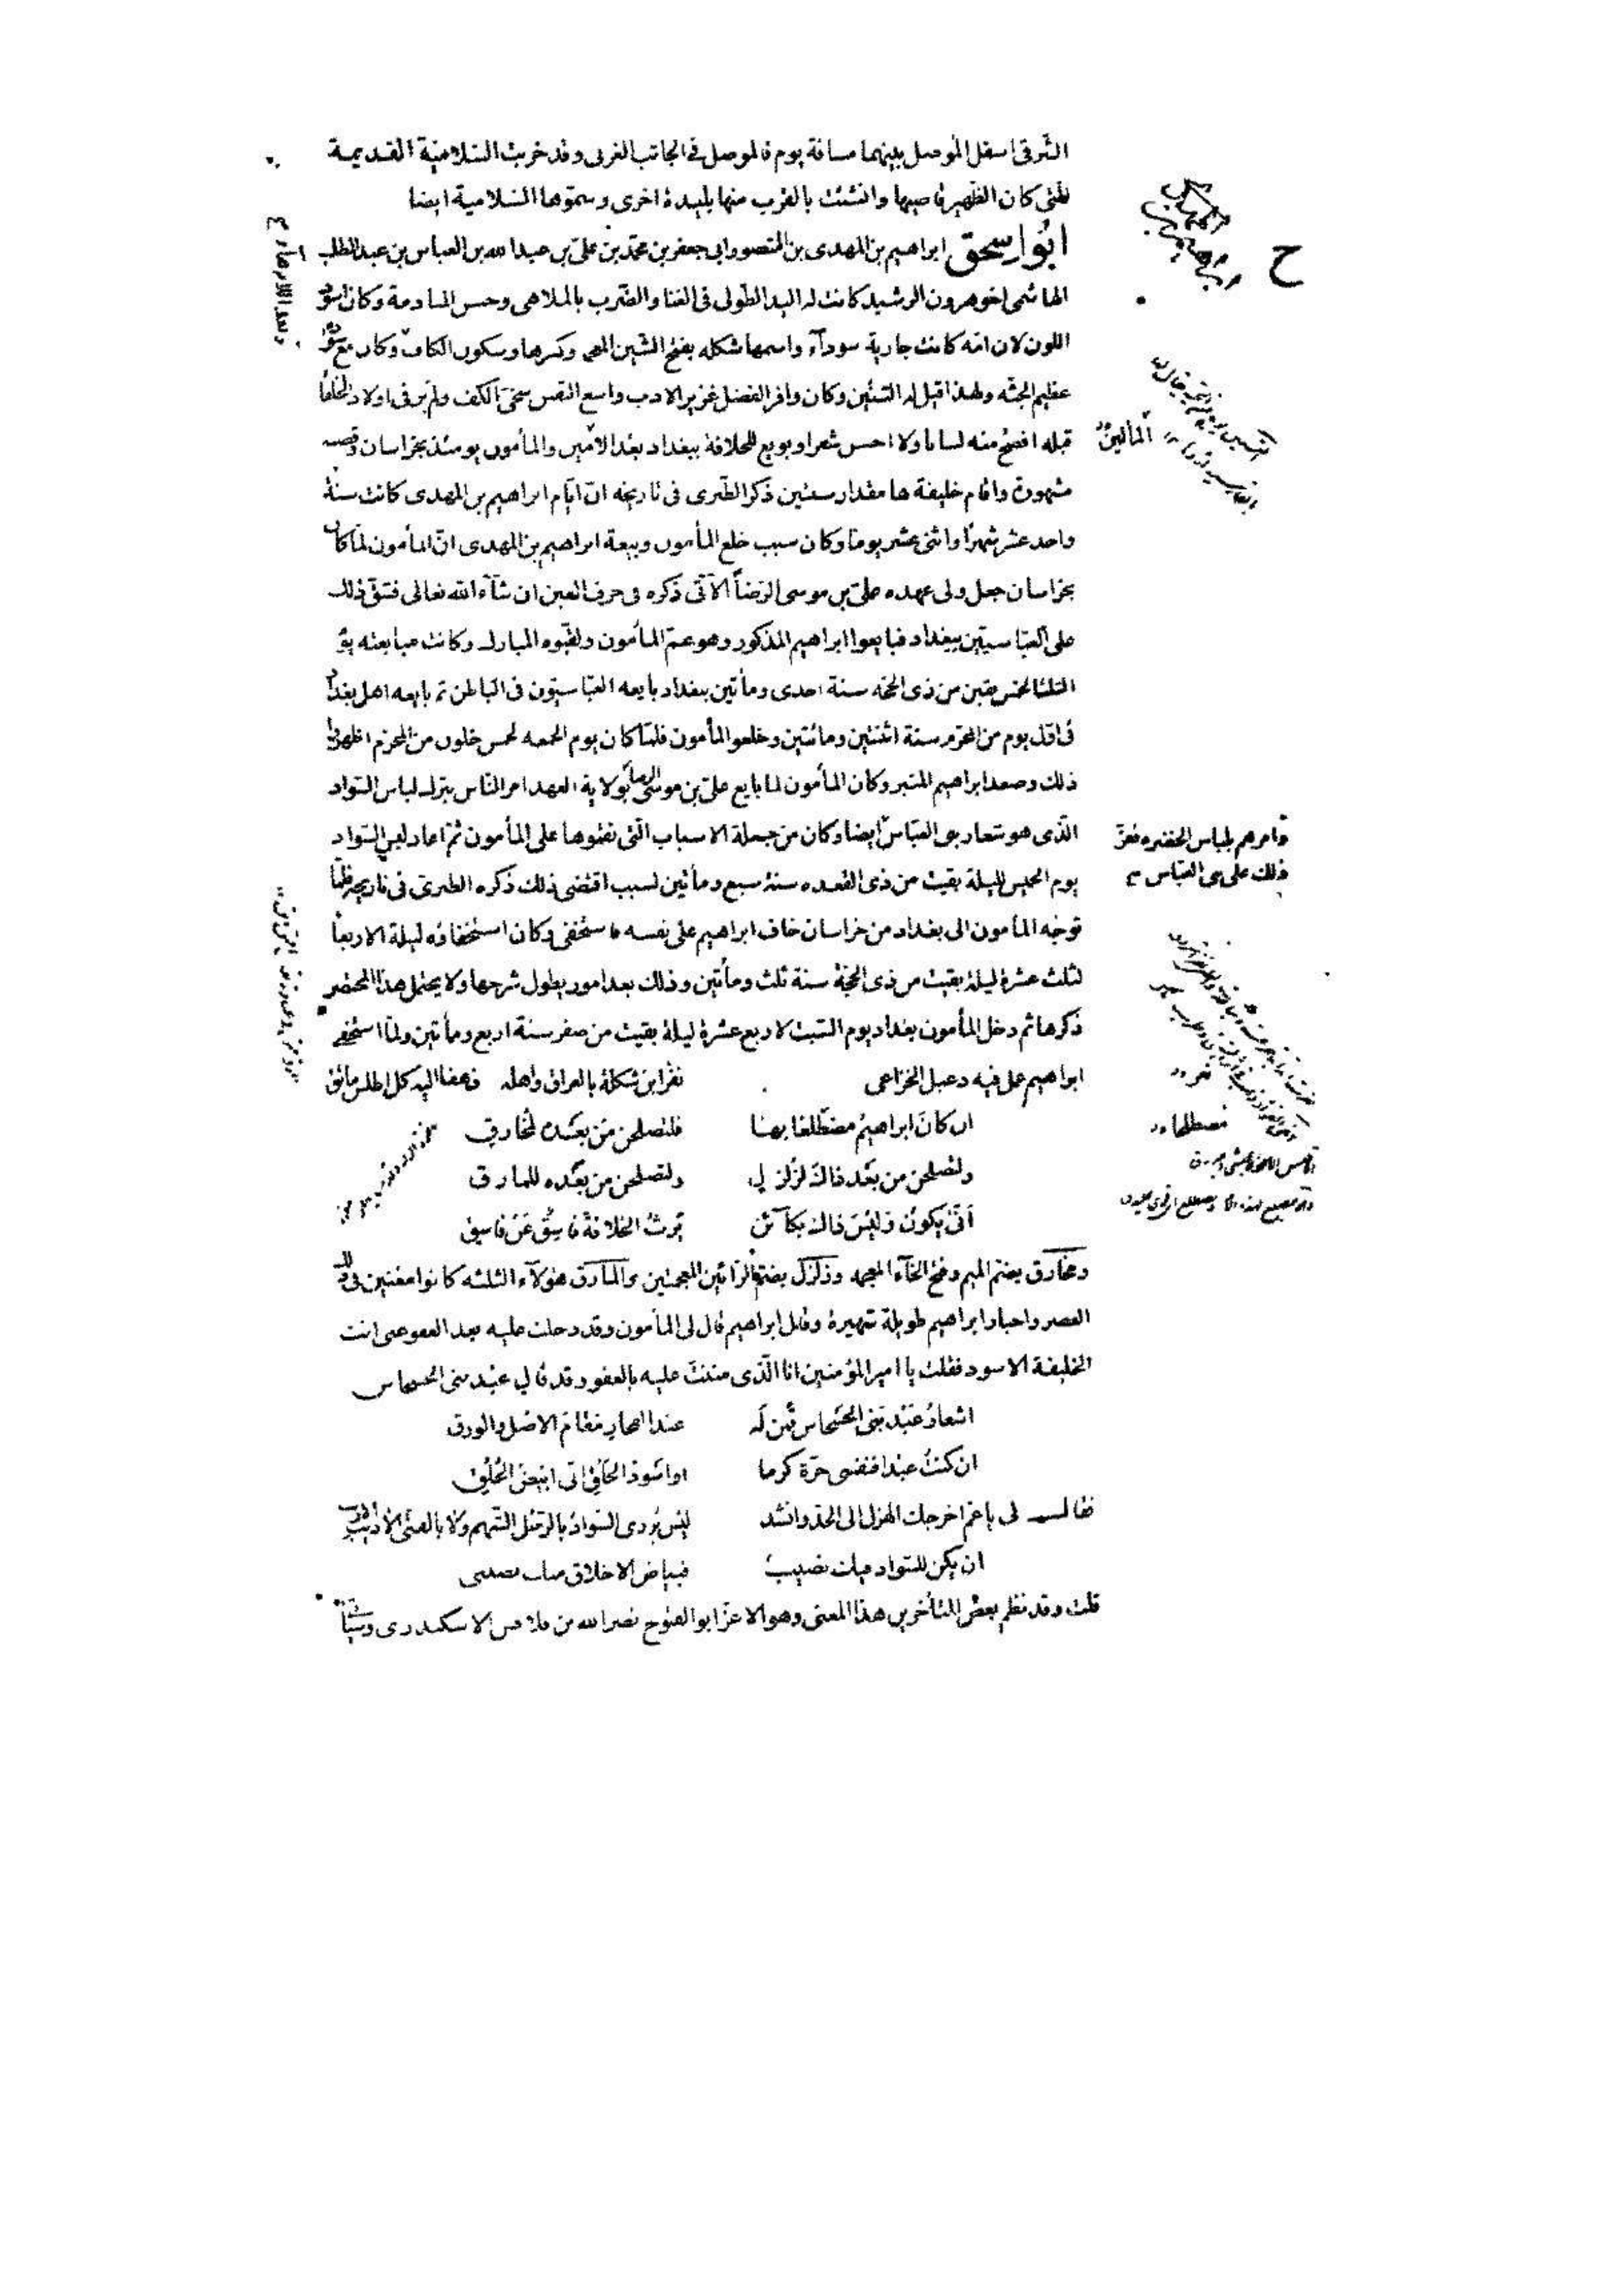 الشرقى اسفل الموصل بينهما مسافة يوم فالموصل فى الجانب الغربى وقد خربت السّلاميّة القديمة
التى كان الظهير قاضيها وانشئت بالقرب منها بليدة اخرى وسمّوها السّلامية ايضا
ابُواسحق ابراهيم بن المهدى بن المنصور ابى جعفر بن محمّد بن علىّ بن عبد الله بن العباس بن عبد المطلب
الهاشمى اخو هرون الرشيد كانت له اليد الطولى فى الغنا والضّرب بالملاهى وحسن المنادمة وكان اسود
اللون لان امّه كانت جارية سودآء واسمها شكله بفتح الشين المعجمه وكسرها وسكون الكاف وكان مع سواده
عظيم الجثّه ولهذا قيل له التنّين وكان وافر الفضل غزير الادب واسع النفس سخىّ الكف ولم ير فى اولاد الخلفا
قبله افصح منه لسانا ولا احسن شعرا وبويع للخلافة ببغداد بعد الامين والمأمون يومئذ بخراسان وقصته
مشهورة واقام خليفة بها مقدار سنتين ذكر الطّبرى فى تاريخه انّ ايّام ابراهيم بن المهدى كانت سنة
واحد عشر شهرًا واثنى عشر يوما وكان سبب خلع المأمون وبيعة ابراهيم بن المهدى انّ المأمون لمّا كان
بخراسان جعل ولى عهده علىّ بن موسى الرّضا الآتى ذكره فى حرف العين ان شآء الله تعالى فشقّ ذلك
على العبّاسيّين ببغداد فبايعوا ابراهيم المذكور وهو عمّ المأمون ولقّبوه المبارك وكانت مبايعته يوم
الثلثا لخمس بقين من ذى الحجّه سنة احدى ومأتين ببغداد بايعه العبّاسيّون فى الباطن ثم بايعه اهل بغداد
فى اوّل يوم من المحرّم سنة اثنتين ومائتين وخلعوا المأمون فلمّا كان يوم الجمعه لخمس خلون من المحرّم اظهروا
ذلك وصعد ابراهيم المنبر وكان المأمون لمّا بايع علىّ بن موسى الرضا بولاية العهد امر النّاس بترك لباس السّواد
الّذى هو شعار بنى العبّاس ايضا وكان من جملة الاسباب الّتى نقموها على المأمون ثمّ اعاد لبس السّواد
وامرهم بلباس الخضره فعزّ
ذلك على بنى العبّاس
يوم الخميس لليلة بقيت من ذى القعده سنة سبع ومأتين لسبب اقتضى ذلك ذكره الطبرى فى تاريخه فلمّا
توجّه المأمون الى بغداد من خراسان خاف ابراهيم على نفسه فاستخفى وكان استخفاؤه ليلة الاربعا
لثلث عشرة ليلة بقيت من ذى الحجّة سنة ثلث ومأتين وذلك بعد امور يطول شرحها ولا يحتمل هذا المختصر
ذكرها ثم دخل المأمون بغداد يوم السّبت لاربع عشرة ليلة بقيت من صفر سنة اربع ومأتين ولمّا استخفى
ابراهيم عمل فيه دعبل الخزاعى نفر ابن شكلة بالعراق واهله فهفا اليه كل اطلس مائق
ان كان ابراهيمُ مضطّلعا بها فلتصلحن من بعده لمخارق
ولتصلحن من بعد ذاك لزلزل ولتصلحن من بعده للمارق
انّى يكون وليس ذاك بكائن يرث الخلافة فاسقٌ عن فاسق
ومخارق بضمّ الميم وفتح الخآء المعجمه وزلزل بضمّ الزائين المعجمتين والمارق هؤلآء الثلثه كانوا مغنيين فى ذلك
العصر واخبار ابراهيم طويلة شهيرة وقال ابراهيم قال لى المأمون وقد دخلت عليه بعد العفو عنى انت
الخليفة الاسود فقلت يا امير المؤمنين انا الّذى مننتَ عليه بالعفو وقد قال عبد بنى الحسحاس
اشعارُ عبْد بَنى الحَسْحاس قُمْن لَه عند الفخار مقام الاصْل والورق
ان كنتُ عبْدا فنفسى حرّة كرما او اسْود الخَلْق انّى ابيض الخُلُق
فقال لى ياعم اخرجك الهزل الى الجدّ وانشد ليْس يُزرى السّوادُ بالرّجُل الشّهم ولا بالفتى الاديب الاريب
ان يكن للسّواد فيك نصيبٌ فبياض الاخلاق منك نصيبى
قلت وقد نظم بعض المتأخرين هذا المعنى وهو الاعزّ ابو الفتوح نصر الله بن قلاقس الاسكندرى